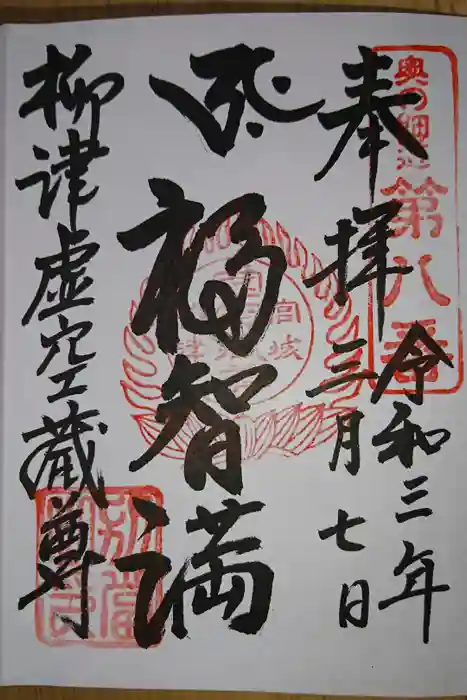 奥の細道
第八番
奉拝
令和三年
三月七日
福智満
柳津虚空蔵尊